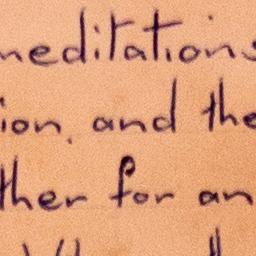 meditations
ion, and the
ther for an